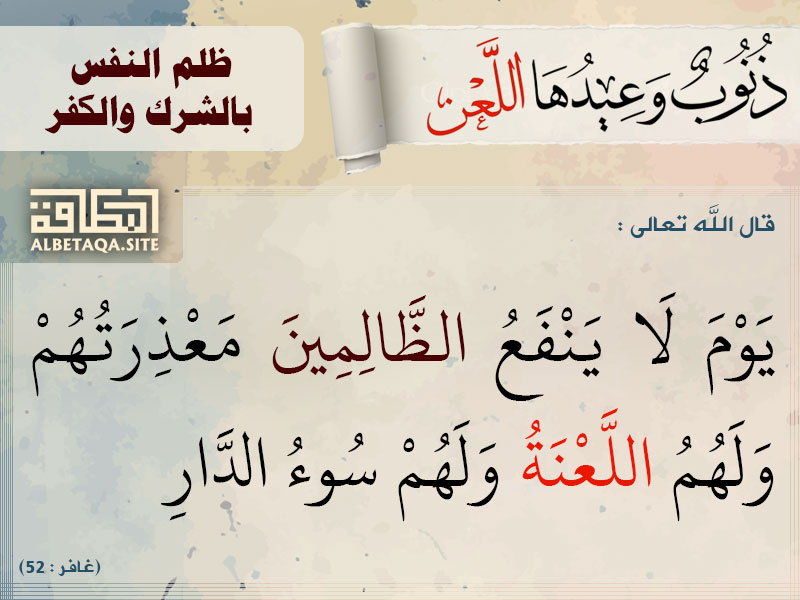 ذُنُوبٌ وَعِيدُهَا اللَّعْن
ظلم النفس
بالشرك والكفر
البطاقة
ALBETAQA.SITE
قال اللَّه تعالى :
يَوْمَ لَا يَنْفَعُ الظَّالِمِينَ مَعْذِرَتُهُمْ
وَلَهُمُ اللَّعْنَةُ وَلَهُمْ سُوءُ الدَّارِ
(غافر : 52)